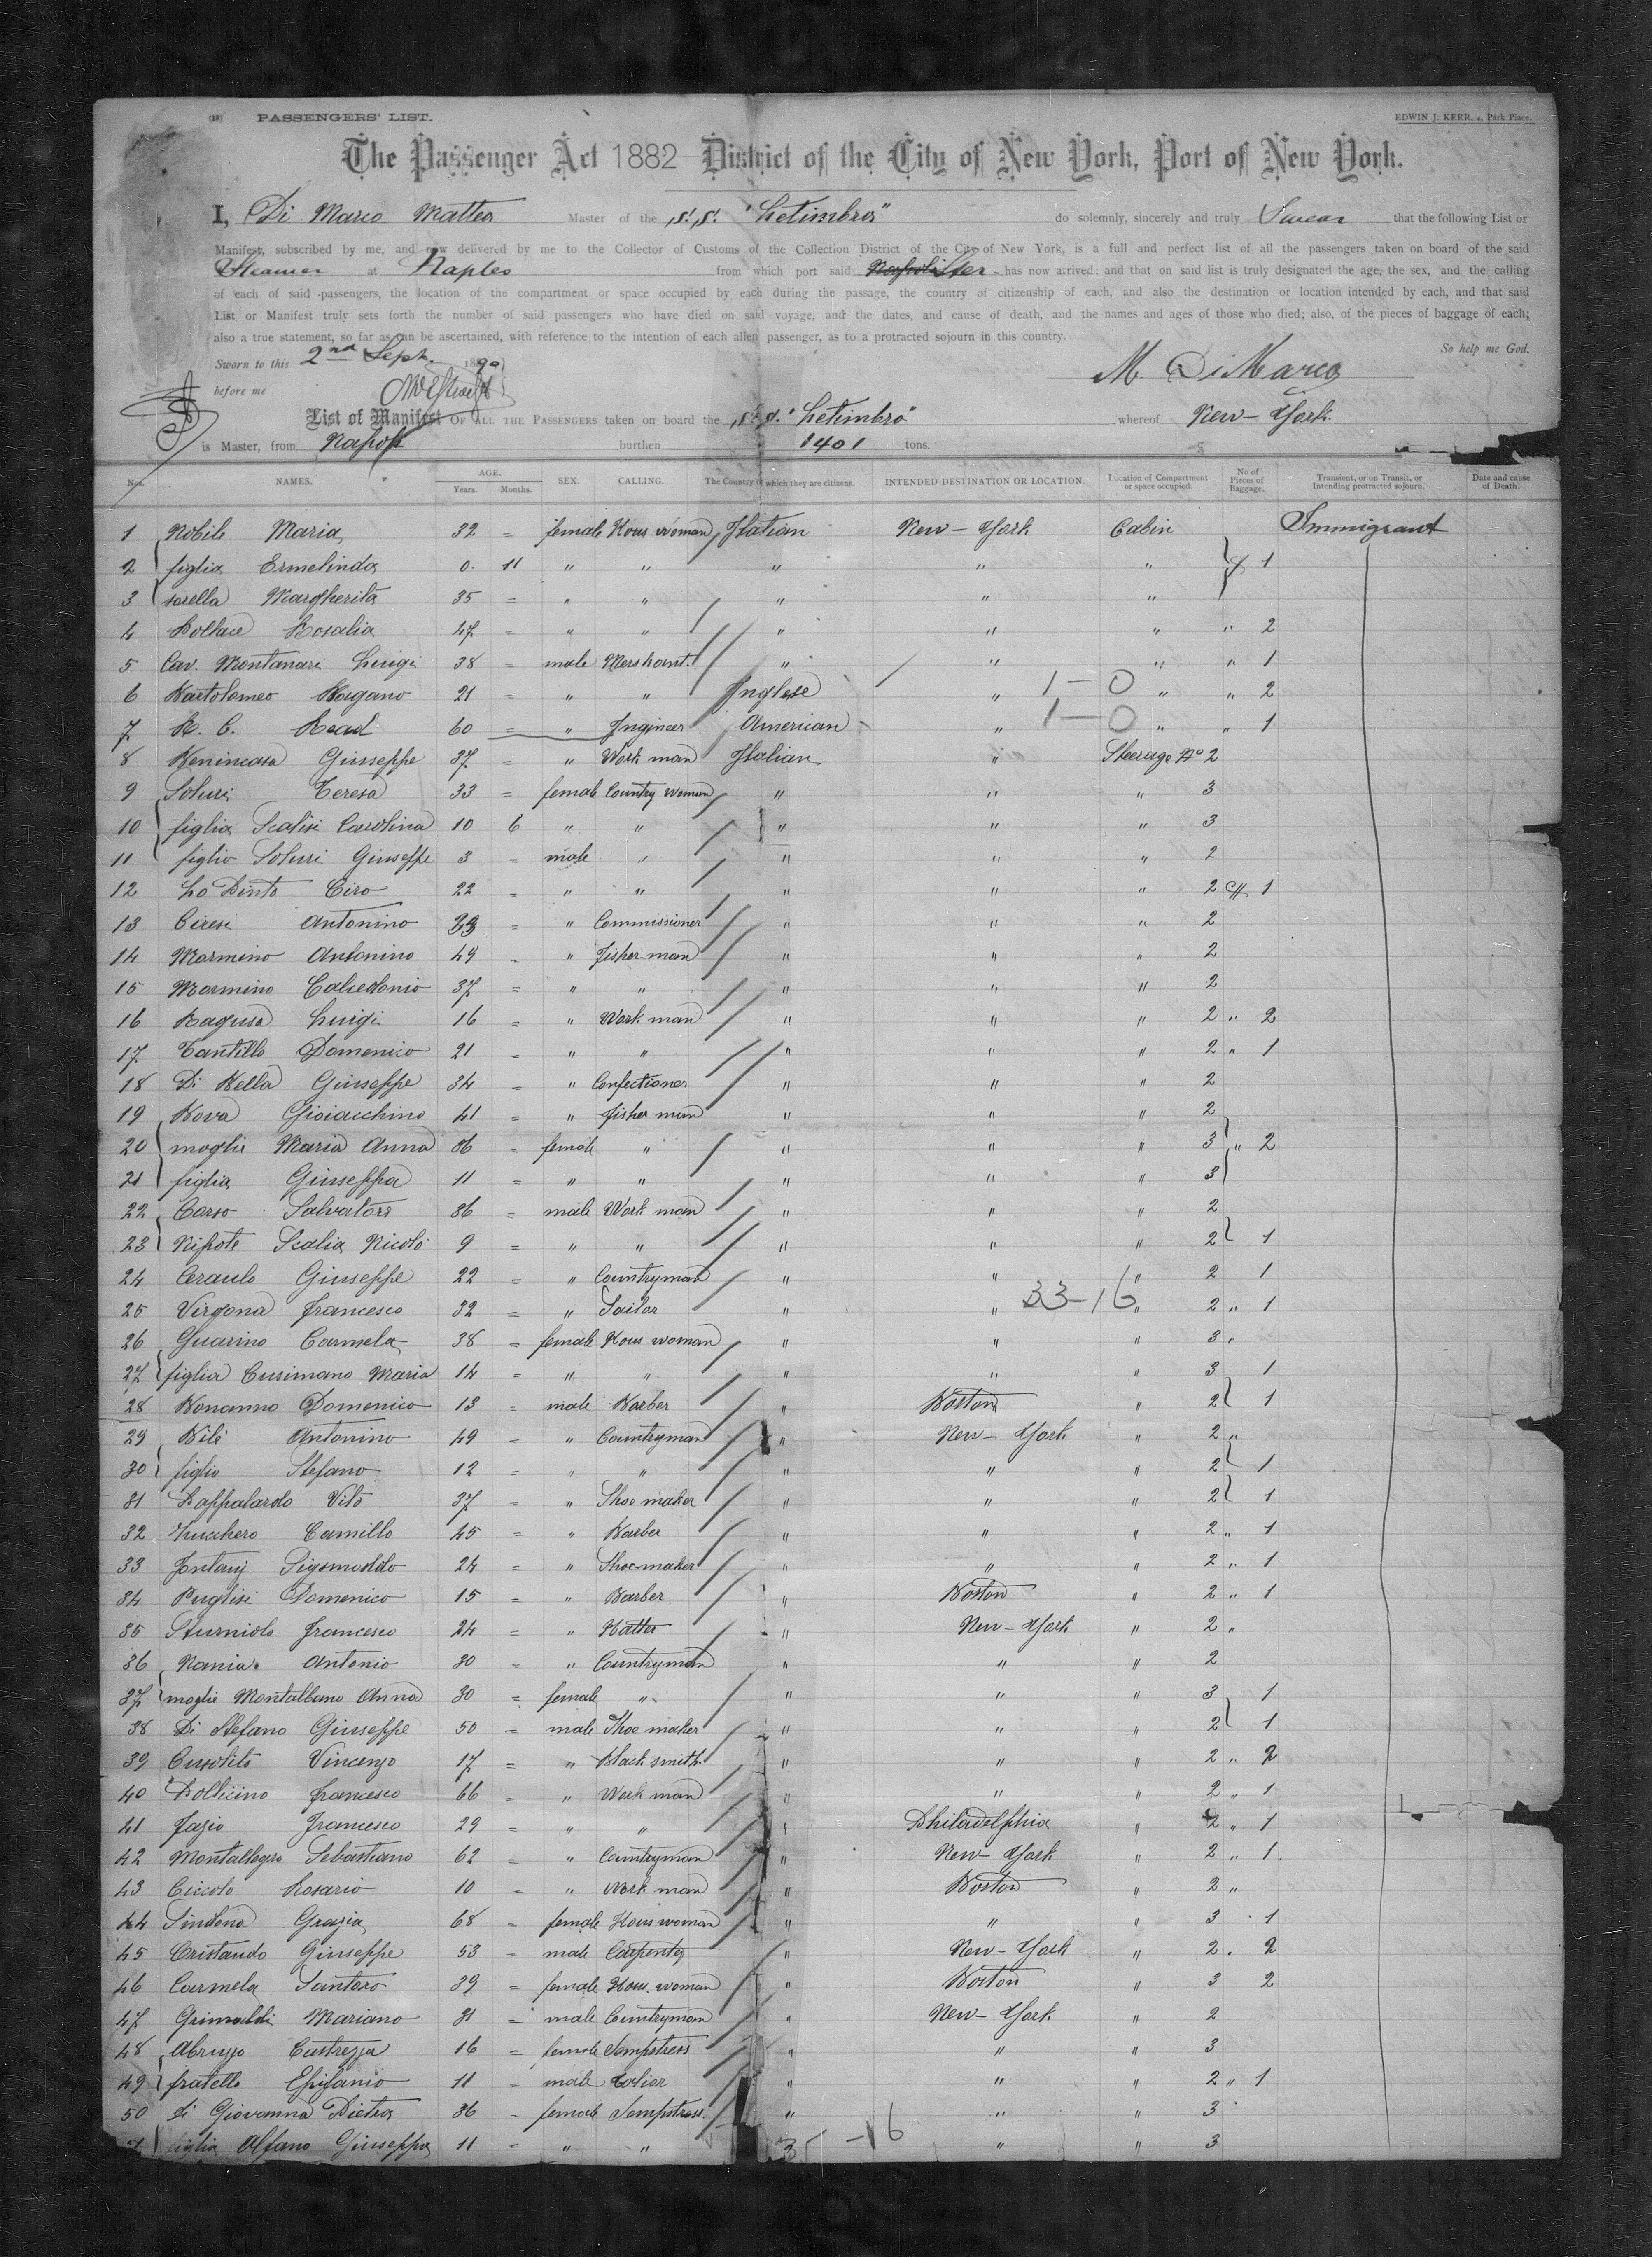 (18) PASSENGERS' LIST. EDWIN J. KERR, 4, Park Place.
The Passenger Act 1882 District of the City of New York, Port of New York.
I, Di Marco Matteo Master of the S.S. "Letimbro" do solemnly, sincerely and truly Swear that the following List or
Manifest, subscribed by me, and now delivered by me to the Collector of Customs of the Collection District of the City of New York, is a full and perfect list of all the passengers taken on board of the said
Steamer at Naples from which port said Ster has now arrived; and that on said list is truly designated the age, the sex, and the calling
of each of said passengers, the location of the compartment or space occupied by each during the passage, the country of citizenship of each, and also the destination or location intended by each, and that said
List or Manifest truly sets forth the number of said passengers who have died on said voyage, and the dates, and cause of death, and the names and ages of those who died; also, of the pieces of baggage of each;
also a true statement, so far as can be ascertained, with reference to the intention of each alien passenger, as to a protracted sojourn in this country.
So help me God.
Sworn to this 2nd Sept. 1890
M Di Marco
before me
List of Manifest OF ALL THE PASSENGERS taken on board the S.S. "Letimbro" whereof New-York
is Master, from Napoli burthen 1401 tons.
Nos. NAMES. AGE. Years. Months. SEX. CALLING. The Country of which they are citizens. INTENDED DESTINATION OR LOCATION. Location of Compartment or space occupied. No of Pieces of Baggage. Transient, or on Transit, or Intending protracted sojourn. Date and cause of Death.
1 Nobile Maria 32 = female Hous woman Italian New-York Cabin Immigrant
2 figlia Ermelinda 0. 11 " " " " " 1
3 sorella Margherita 35 = " " " " "
4 Pollace Rosalia 47 = " " " " " " 2
5 Cav. Montanari Luigi 38 = male Mershant. " " " " 1
6 Bartolomeo Bogano 21 = " " Inglese " 1-0 " " 2
7 R. C. Read 60 = " Ingineer American " 1-0 " " 1
8 Benincasa Giuseppe 37 = " Work man Italian " Steerage No 2
9 Soluri Teresa 33 = female Country woman " " " 3
10 figlia Scalisi Carolina 10 6 " " " " " 3
11 figlio Soluri Giuseppe 3 = male " " " " 2
12 Lo Pinto Ciro 22 = " " " " " 2 1
13 Ciresi Antonino 33 = " Commissioner " " " 2
14 Marmino Antonino 49 = " Fisher-man " " " 2
15 Marmino Calcedonio 37 = " " " " " 2
16 Ragusa Luigi 16 = " Work man " " " 2 " 2
17 Tantillo Domenico 21 = " " " " " 2 " 1
18 Di Bella Giuseppe 34 = " Confectioner " " " 2
19 Bova Gioiacchino 41 = " fisher man " " " 2
20 moglie Maria Anna 36 = female " " " " 3 " 2
21 figlia Giuseppa 11 = " " " " " 3
22 Corso Salvatore 36 = male Work man " " " 2
23 Nipote Scalia Nicolò 9 = " " " " " 2 1
24 Ceraulo Giuseppe 22 = " Countryman " " " 2 1
25 Virgona Francesco 32 = " Sailor " " 33-16 " 2 " 1
26 Guarino Carmela 38 = female Hous woman " " " 3 "
27 figlia Cusimano Maria 14 = " " " " " 3 1
28 Bonanno Domenico 13 = male Barber " Boston " 2 1
29 Bili Antonino 49 = " Countryman " New-York " 2 "
30 figlio Stefano 12 = " " " " " 2 1
31 Pappalardo Vito 37 = " Shoe maker " " " 2 1
32 Zucchero Camillo 45 = " Barber " " " 2 " 1
33 24 = " Shoemaker " " " 2 " 1
34 Puglisi Domenico 15 = " Barber " Boston " 2 " 1
35 Sturniolo Francesco 24 = " Hatter " New-York " 2 "
36 Nania Antonio 30 = " Countryman " " " 2
37 moglie Montalbano Anna 30 = female " " " " 3 1
38 Di Stefano Giuseppe 50 = male Shoe maker " " " 2 1
39 Cusolito Vincenzo 17 = " Black smith " " " 2 " 2
40 Pollicino Francesco 66 = " Work man " " " 2 " 1
41 Fazio Francesco 29 = " " " Philadelphia " 2 " 1
42 Montallegro Sebastiano 62 = " Countryman " New-York " 2 " 1
43 Ciccolo Rosario 10 = " Work man " Boston " 2 "
44 Sindona Grazia 68 = female Hous woman " " " 3 1
45 Cristaudo Giuseppe 53 = male Carpenter " New-York " 2 . 2
46 Carmela Santoro 39 = female Hous. woman " Boston " 3 2
47 Grimaldi Mariano 31 = male Countryman " New-York " 2
48 Abruzzo Custrezza 16 = female Sempstress " " " 3
49 fratello Epifanio 11 = male " " " 2 " 1
50 di Giovanna Pietra 36 = female Sempstress " " " 3
figlia Alfano Giuseppa 11 = " " 35-16 " " 3